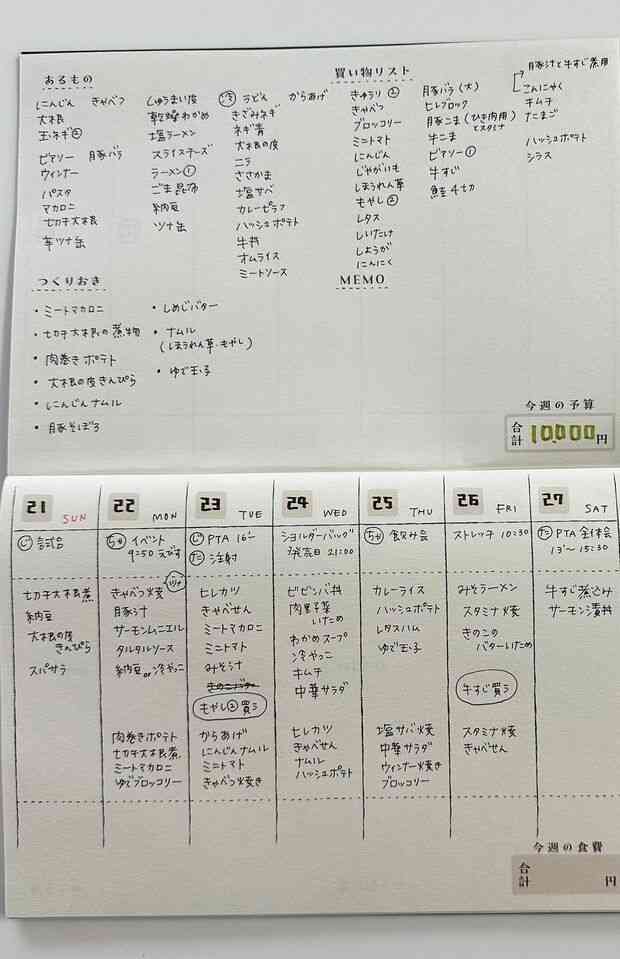 あるもの
にんじん きゃべつ
大根
玉ネギ②
ピアソー 豚バラ
ウィンナー
パスタ
マカロニ
切カチ大根
羊ツナ缶
しゅうまい皮
乾燥わかめ
塩ラーメン
スライスチーズ
ラーメン①
ごま昆布
納豆
ツナ缶
冷 うどん からあげ
きざみネギ
ネギ青
大根の皮
ニラ
ささかま
塩サバ
カレーピラフ
ハッシュポテト
牛丼
オムライス
ミートソース
買い物リスト
きゅうり②
きゃべつ
ブロッコリー
ミニトマト
にんじん
じゃがいも
ほうれん草
もやし②
レタス
しいたけ
しょうが
にんにく
豚バラ(大)
ヒレブロック
豚こま(ひき肉用とスタミナ)
牛こま
ピアソー①
牛すじ
鮭4切
豚汁と牛すじ煮用
こんにゃく
キムチ
たまご
ハッシュポテト
シラス
つくりおき
・ミートマカロニ
・切カチ大根の煮物
・肉巻きポテト
・大根の皮きんぴら
・にんじんナムル
・豚そぼろ
・しめじバター
・ナムル
(ほうれん草・もやし)
・ゆで玉子
MEMO
今週の予算
合計 10,000円
21 SUN
じ 試合
切カチ大根煮
納豆
大根の皮
きんぴら
スパサラ
22 MON
ちゅ イベント
9:50 えびす
きゃべつ焼
ツナ
豚汁
サーモンムニエル
タルタルソース
納豆or冷やっこ
肉巻きポテト
切カチ大根煮
ミートマカロニ
ゆでブロッコリー
23 TUE
じ PTA 16'~
た 注射
ヒレカツ
きゃべせん
ミートマカロニ
ミニトマト
みそ汁
きのこバター
もやし②買う
からあげ
にんじんナムル
ミニトマト
きゃべつ焼き
24 WED
ショルダーバッグ
発売日 21:00
ビビンバ丼
肉野菜
いため
わかめスープ
冷やっこ
キムチ
中華サラダ
ヒレカツ
きゃべせん
ナムル
ハッシュポテト
25 THU
ちゅ 飲み会
カレーライス
ハッシュポテト
レタスハム
ゆで玉子
塩サバ焼
中華サラダ
ウィンナー焼き
ブロッコリー
26 FRI
ストレッチ 10:30
みそラーメン
スタミナ焼
きのこの
バターいため
牛すじ買う
スタミナ焼
きゃべせん
27 SAT
た PTA全体会
13'~15:30
牛すじ煮込み
サーモン漬丼
今週の食費
合計 円